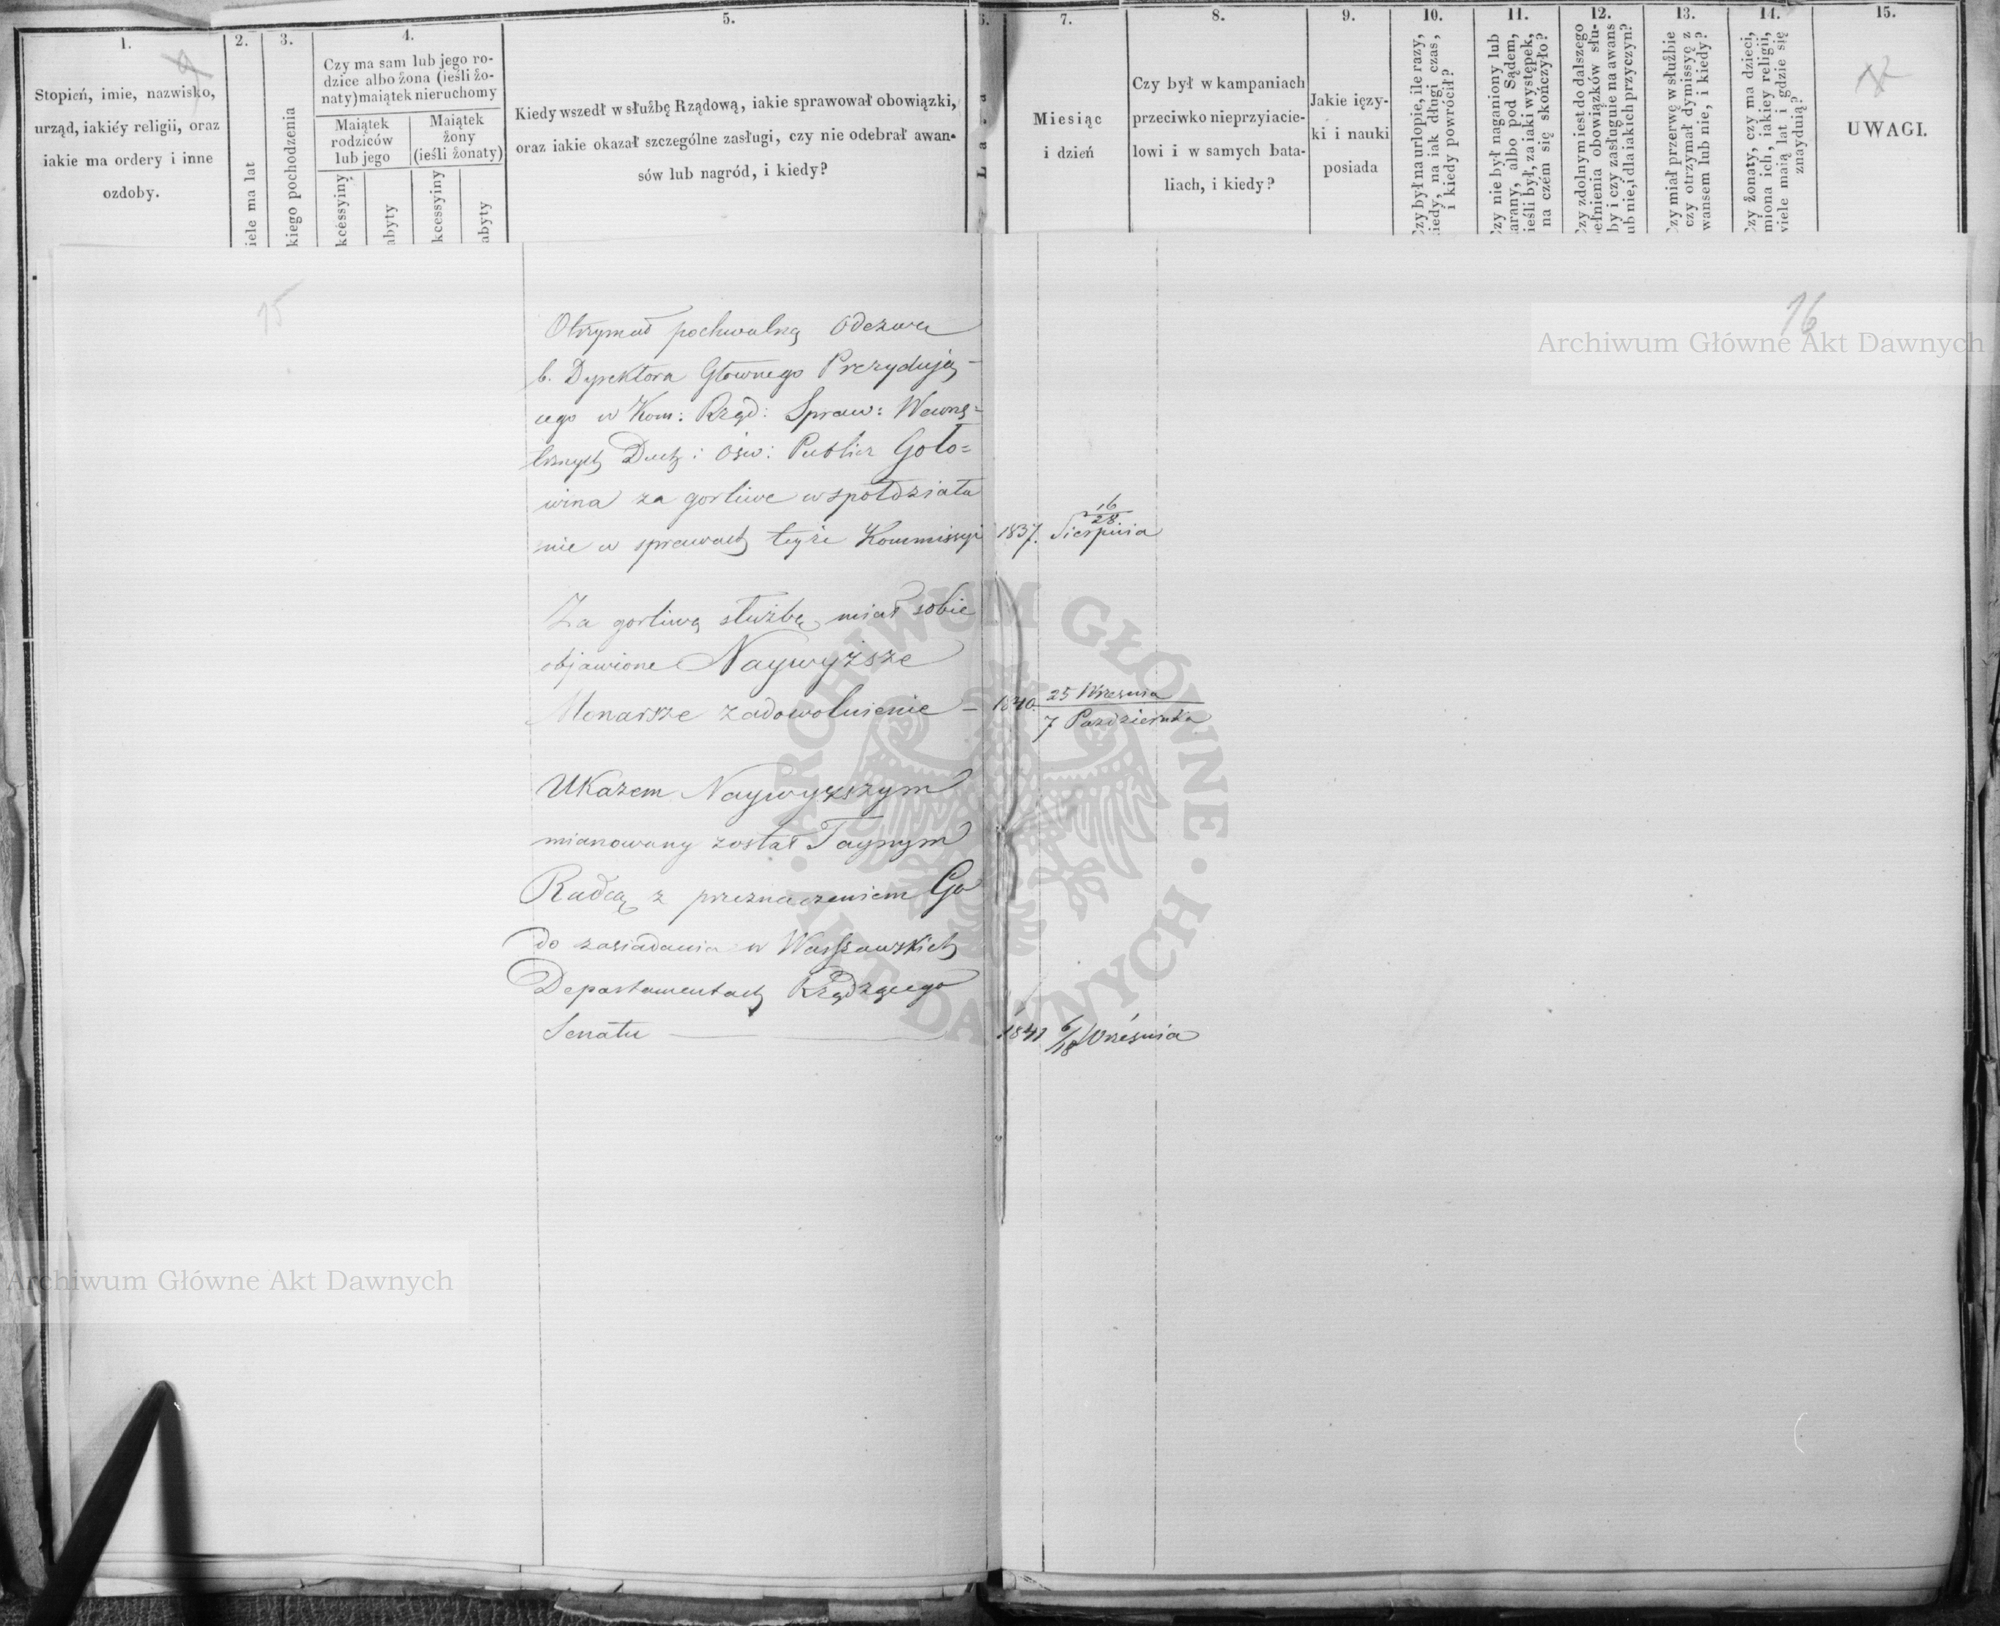 1.
Stopień, imie, nazwisko,
urząd, iakiéy religii, oraz
iakie ma ordery i inne
ozdoby.
2.
iele ma lat
3.
kiego pochodzenia
4.
Czy ma sam lub jego ro-
dzice albo żona (ieśli żo-
naty) maiątek nieruchomy
Maiątek
rodziców
lub jego
Maiątek
żony
(ieśli żonaty)
kcéssyiny
abyty
kcessyiny
abyty
5.
Kiedy wszedł w służbę Rządową, iakie sprawował obowiązki,
oraz iakie okazał szczególne zasługi, czy nie odebrał awan-
sów lub nagród, i kiedy?
6.
Lata
7.
Miesiąc
i dzień
8.
Czy był w kampaniach
przeciwko nieprzyiacie-
lowi i w samych bata-
liach, i kiedy?
9.
Jakie ięzy-
ki i nauki
posiada
10.
Czy był na urlopie, ile razy,
iedy, na iak długi czas,
i kiedy powrócił?
11.
Czy nie był naganiony lub
arany, albo pod Sądem,
ieśli był, za iaki występek,
na czém się skończyło?
12.
Czy zdolnym iest do dalszego
ełnienia obowiązków słu-
by i czy zasługuie na awans
ub nie, i dla iakich przyczyn?
13.
Czy miał przerwę w służbie
czy otrzymał dymissyę z
wansem lub nie, i kiedy?
14.
Czy żonaty, czy ma dzieci,
miona ich, iakiey religii,
wiele maią lat i gdzie się
znayduią?
15.
UWAGI.
15
16
Archiwum Główne Akt Dawnych
Otrzymał pochwalną Odezwę
b. Dyrektora Głownego Prezydują-
cego w Kom: Rząd: Spraw: Wewnę=
trznych Duch: Ośw: Public Goło=
wina za gorliwe wspołdziała
nie w sprawach teyże Kommissyi 1837. 16/28 Sierpnia
Za gorliwą służbę miał sobie
objawione Naywyższe
Monarsze zadowolnienie - 1840. 25 Września / 7 Pazdziernika
Ukazem Naywyższym
mianowany został Taynym
Radcą z przeznaczeniem Go
do zasiadania w Warszawskich
Departamentach Rządzącego
Senatu 1841 6/18 Września
ARCHIWUM GŁÓWNE AKT DAWNYCH
Archiwum Główne Akt Dawnych